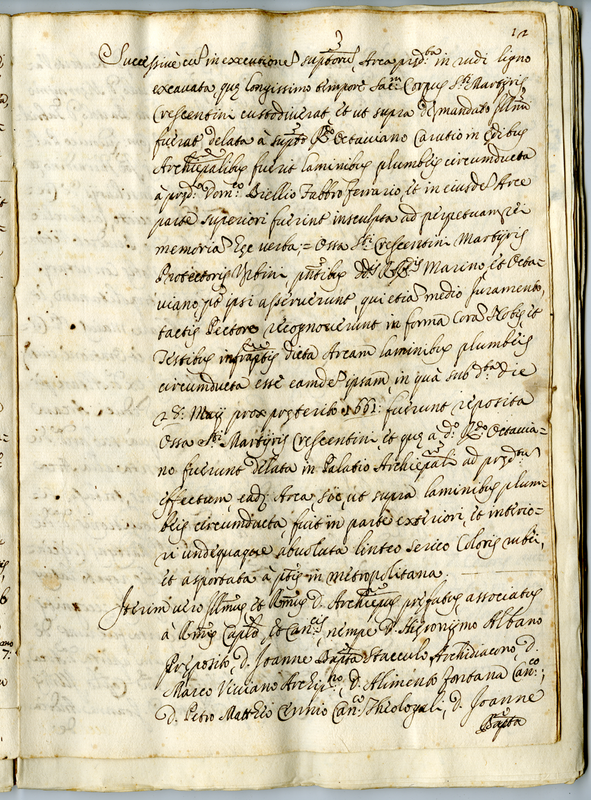 3
12
Successivè cùl in executione supttorũ Arca prdtta in rudi ligno
excavata quę longissimo tempore Sacm Corpus Sti Martyris
Crescentini custodiverat, et ut supra de mandato Illmi
fuerat delata à suptto Rdo Octaviano Carutio in Ędibus
Archiepalibus fuerit laminibus plumbeis circumducta
à prędo Domco Biellio Fabbroferrario, et in eiusdẽ Arce
parte superiori fuerint insculpta ad perpetuam rei
memoriã Hęc verba, = Ossa Sti Crescentini Martyris
Protectoris Urbini pntibus DD. RRis Marino, et Octa=
viano, pt ipsi asserverunt qui etiã medio Juramento,
tactis Pectore recognoverunt in forma Corã Nobis, et
Testibus infraptis dicta Arcam laminibus plumbeis
circumducta esse eamdẽ ipsam in quà sub dta die
28: Maij prox: pręterito 1661: fuerunt reposita
Ossa Sti Martyris Crescentini et quę a do Rdo Octavia=
no fuerunt delata in Palatio Archiepali ad prędtu
effectum, eadẽ Arca, sic, ut supra laminibus plum=
beis circumducta fuit in parte exteriori, et interio=
ri undequaque absoluta linteo serico Coloris rubei,
et asportata à ptis in metropolitana.
Iterim vero Illmus et Rmus D. Archiepus pręfatus associatus
à Rmis Caplo, et Cancis, nempe D. Hieronymo Albano
Pręposito, D. Joanne Bapta Staccolo Archidiacono, D.
Marco Viviano Archipro, D. Alimento Fontana Canco,
D. Petro Mattheo Ennio Canco Theologali, D. Joanne
Bapta